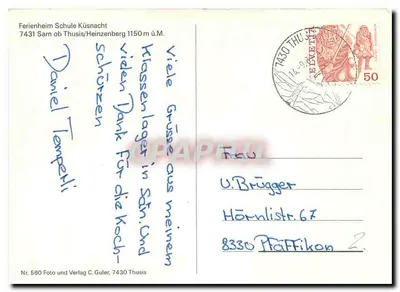 Ferienheim Schule Küsnacht
7431 Sarn ob Thusis/Heinzenberg 1150 m ü.M.
Viele Grüsse aus meinem
Klassenlager in Sarn. Und
vielen Dank für die Koch-
schürzen
Daniel Temperli
Nr. 560 Foto und Verlag C. Guler, 7430 Thusis
7430 THUSIS
HELVETIA
50
Frau
U. Brügger
Hörnlistr. 67
8330 Pfäffikon